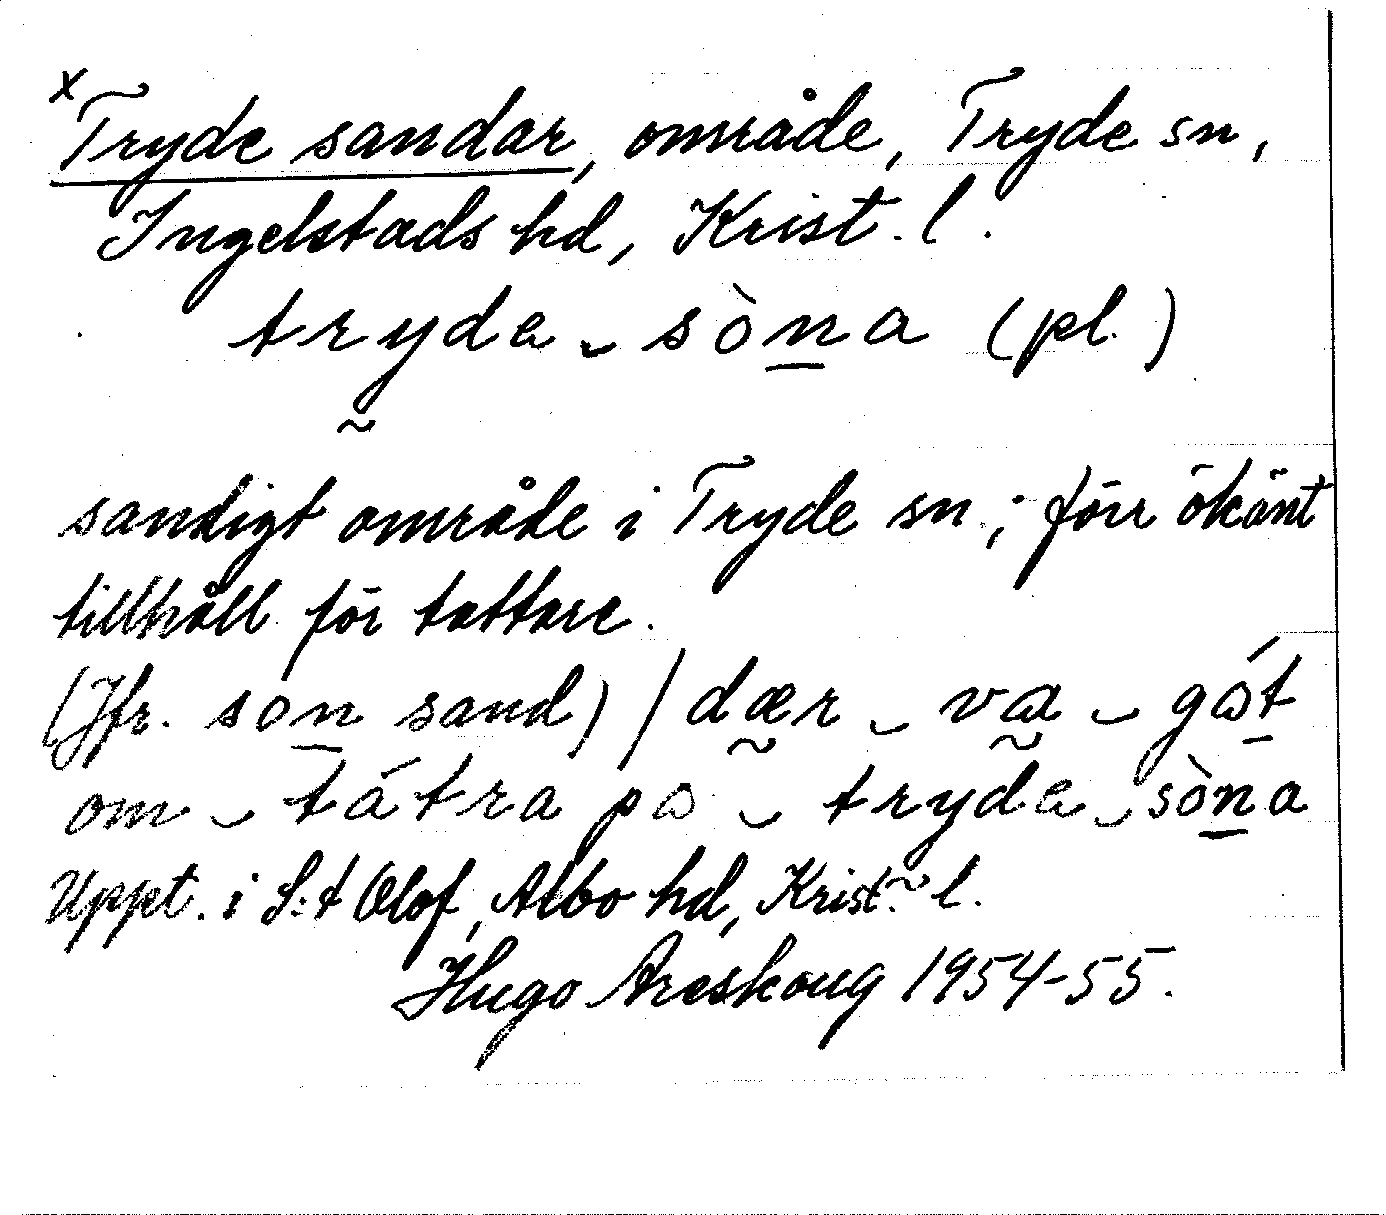 x Tryde sandar, område, Tryde sn,
Ingelstads hd, Krist. l.
tryde‿sòn̲a (pl.)
sandigt område i Tryde sn.; förr ökänt
tillhåll för tattare.
(Jfr. son̲ sand) / dær‿va‿gát̲
om‿tátra pa‿tryde‿sòn̲a
Uppt. i S:t Olof, Albo hd, Krist. l.
Hugo Areskoug 1954-55.